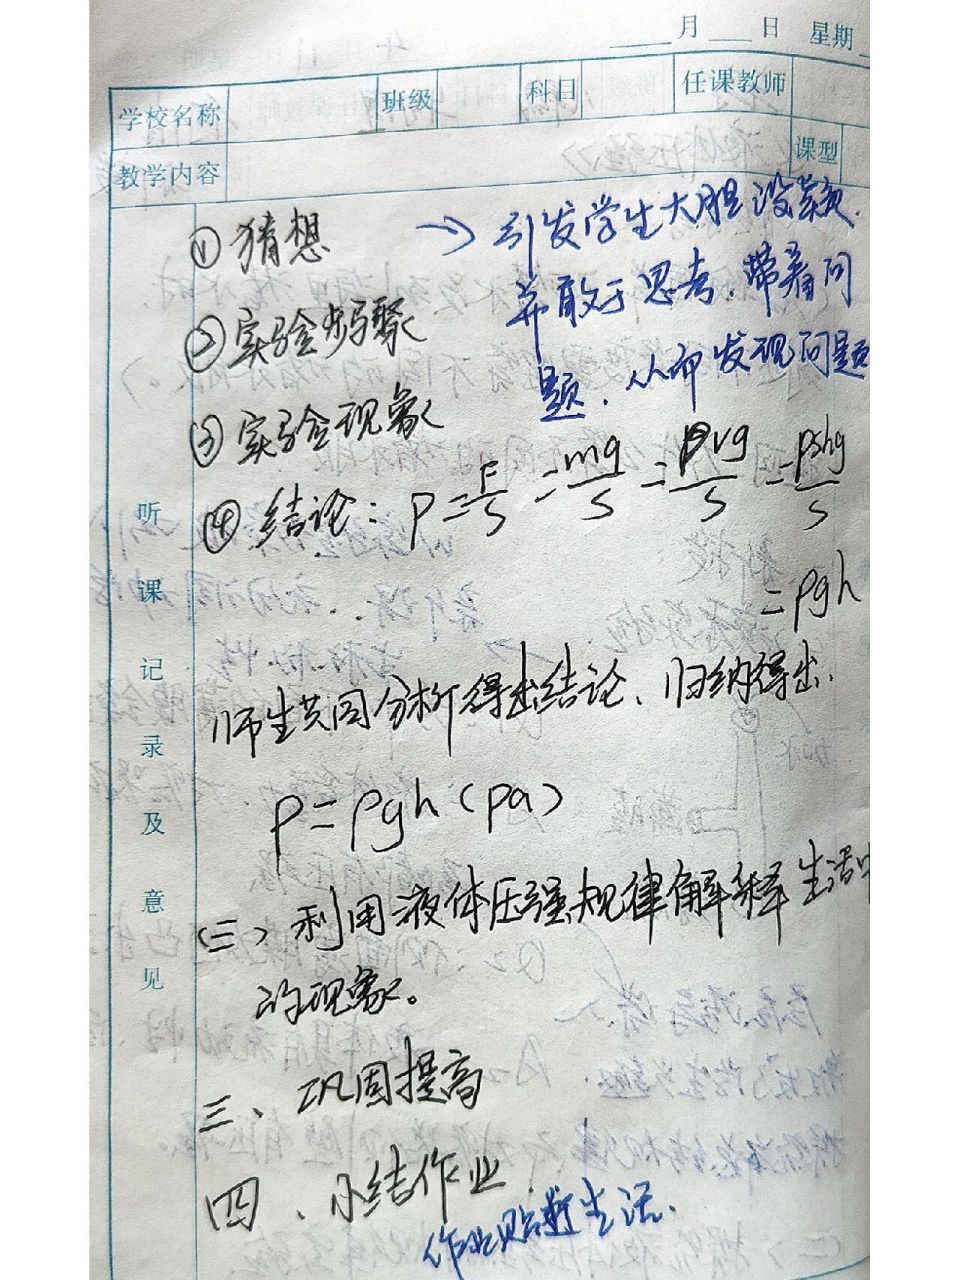 ____月____日 星期
学校名称 班级 科目 任课教师
教学内容 课型
听课记录及意见
①猜想 → 引发学生大胆设疑,
并敢于思考,带着问
题,从而发现问题
②实验步骤
③实验现象
④结论: P=F/S =mg/S =ρvg/S =ρshg/S
=ρgh
师生共同分析得出结论、归纳得出.
P=ρgh(pa)
(三)、利用液体压强规律解释生活中
的现象。
三、巩固提高
四、小结作业
作业贴近生活.